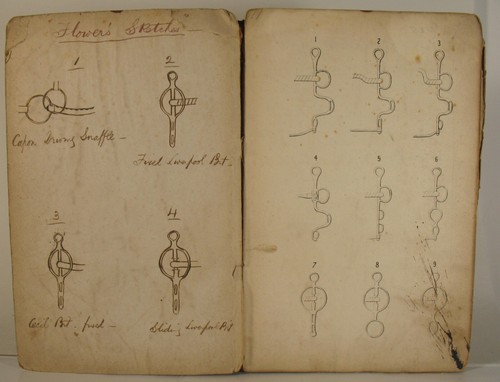 Flower's Sketches
1
2
Capon Driving Snaffle –
Fixed Liverpool Bit.
3
4
Cecil Bit. fixed –
Sliding Liverpool Bit
1
2
3
4
5
6
7
8
9